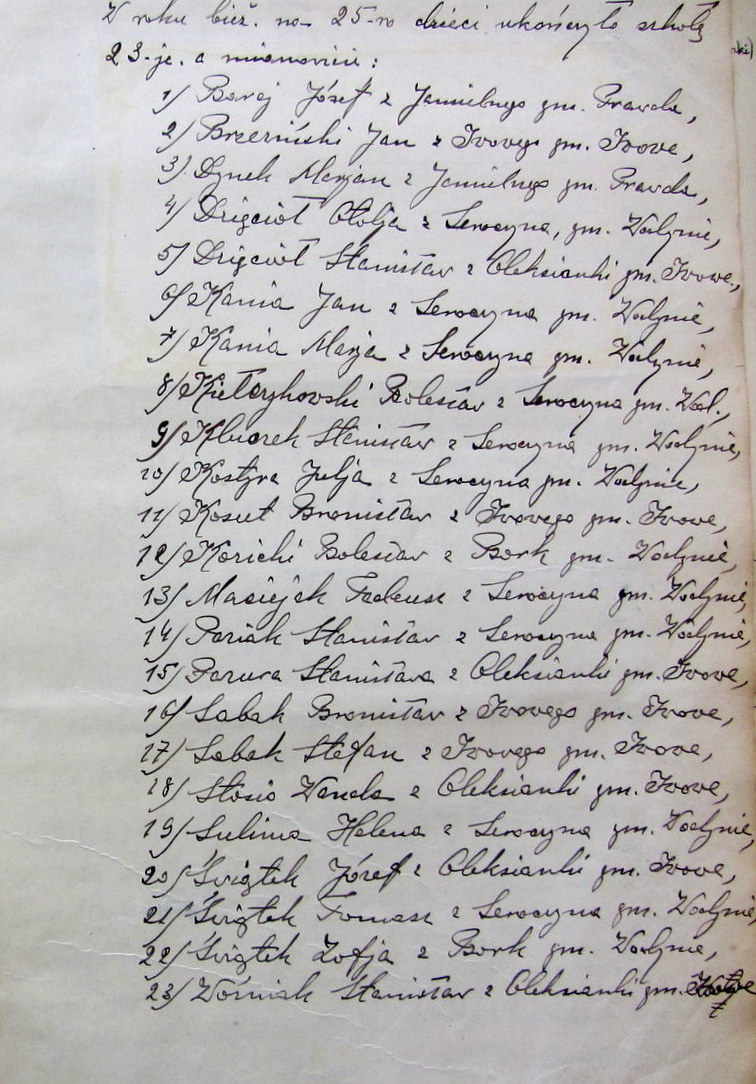 W roku bież. na 25-ro dzieci ukończyło szkołę
23-je. a mianowicie:
1/ Baraj Józef z Jamielnego gm. Prawda,
2/ Brzeziński Jan z Iwowego gm. Iwowe,
3/ Dynek Marjan z Jamielnego gm. Prawda,
4/ Dzięcioł Otolja z Seroczyna, gm. Wodynie,
5/ Dzięcioł Stanisław z Oleksianki gm. Iwowe,
6/ Kania Jan z Seroczyna gm. Wodynie,
7/ Kania Marja z Seroczyna gm. Wodynie,
8/ Kiełczykowski Bolesław z Seroczyna gm. Wod.,
9/ Kluczek Stanisław z Seroczyna gm. Wodynie,
10/ Kostyra Julja z Seroczyna gm. Wodynie,
11/ Kosut Bronisław z Iwowego gm. Iwowe,
12/ Kozicki Bolesław z Bork gm. Wodynie,
13/ Maciejak Tadeusz z Seroczyna gm. Wodynie,
14/ Paziak Stanisław z Seroczyna gm. Wodynie,
15/ Pazura Stanisława z Oleksianki gm. Iwowe,
16/ Sabak Bronisław z Iwowego gm. Iwowe,
17/ Sabak Stefan z Iwowego gm. Iwowe,
18/ Stosio Wanda z Oleksianki gm. Iwowe,
19/ Sulima Helena z Seroczyna gm. Wodynie,
20/ Świątek Józef z Oleksianki gm. Iwowe,
21/ Świątek Tomasz z Seroczyna gm. Wodynie,
22/ Świątek Zofja z Bork gm. Wodynie,
23/ Woźniak Stanisław z Oleksianki gm.